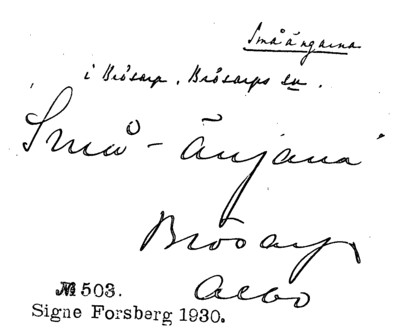 Småängarna
i Brösarp, Brösarps sn.
"Små-änjana"
Brösarp
Albo
№ 503.
Signe Forsberg 1930.